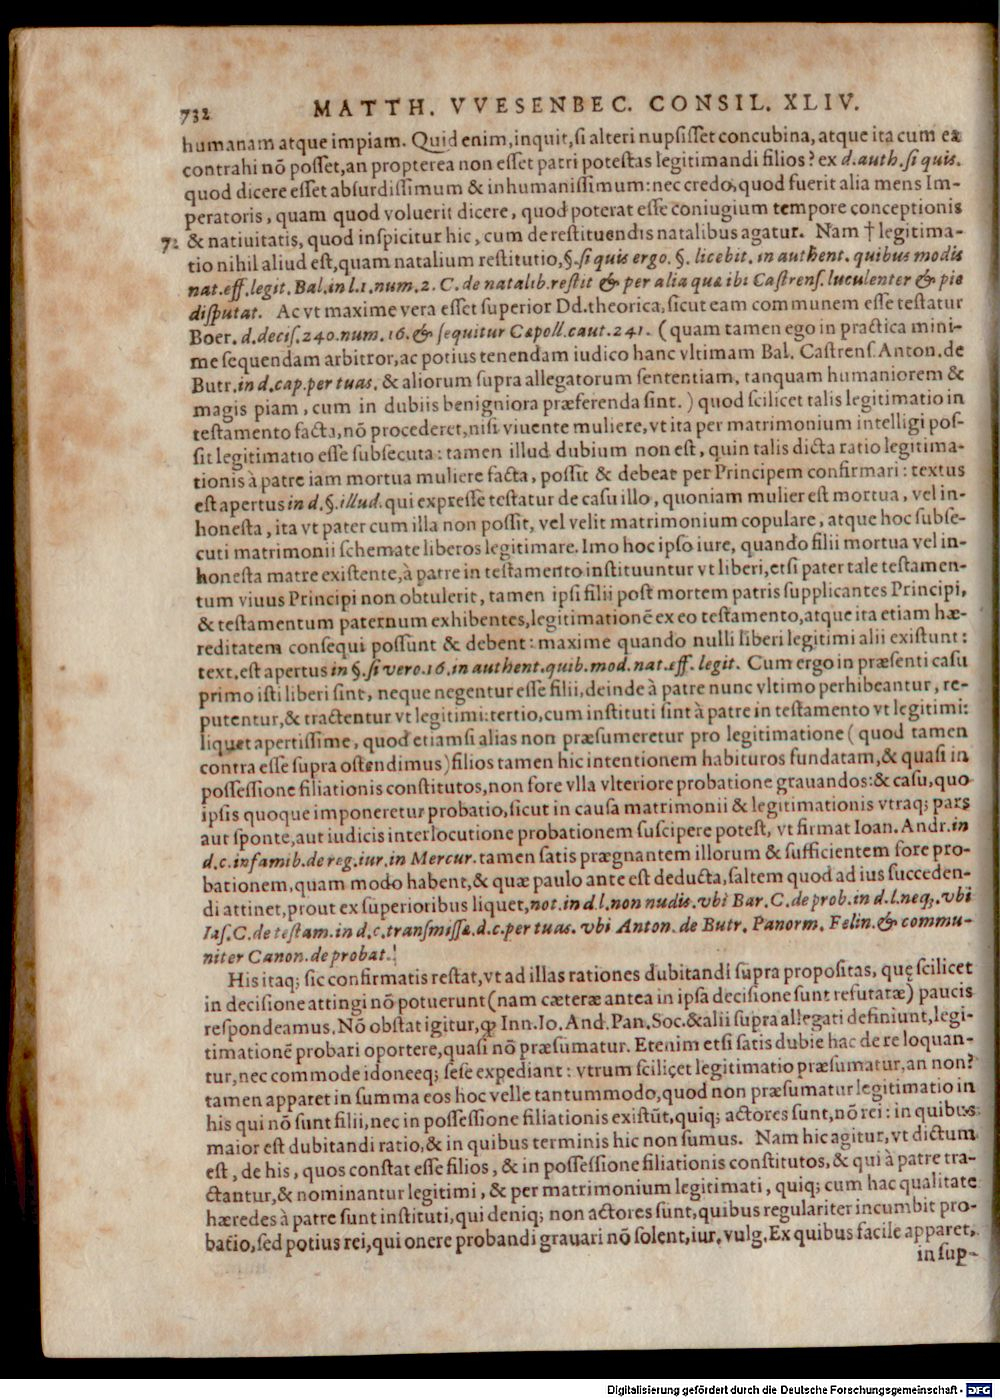 732 MATTH. VVESENBEC. CONSIL. XLIV.
humanam atque impiam. Quid enim, inquit, si alteri nupsisset concubina, atque ita cum ea
contrahi nõ posset, an propterea non esset patri potestas legitimandi filios? ex d. auth. si quis.
quod dicere esset absurdissimum & inhumanissimum: nec credo, quod fuerit alia mens Im-
peratoris, quam quod voluerit dicere, quod poterat esse coniugium tempore conceptionis
7. & natiuitatis, quod inspicitur hic, cum de restituendis natalibus agatur. Nam † legitima-
tio nihil aliud est, quam natalium restitutio, §. si quis ergo. §. licebit. in authent. quibus modis
nat. eff. legit. Bal. in l. 1. num. 2. C. de natalib. restit & per alia quæ ibi Castrens. luculenter & pie
disputat. Ac vt maxime vera esset superior Dd. theorica, sicut eam communem esse testatur
Boer. d. decis. 240. num. 16. & sequitur Capoll. caut. 241. (quam tamen ego in practica mini-
me sequendam arbitror, ac potius tenendam iudico hanc vltimam Bal. Castrens. Anton. de
Butr. in d. cap. per tuas. & aliorum supra allegatorum sententiam, tanquam humaniorem &
magis piam, cum in dubiis benigniora præferenda sint.) quod scilicet talis legitimatio in
testamento facta, nõ procederet, nisi viuente muliere, vt ita per matrimonium intelligi pos-
sit legitimatio esse subsecuta: tamen illud dubium non est, quin talis dicta ratio legitima-
tionis à patre iam mortua muliere facta, possit & debeat per Principem confirmari: textus
est apertus in d. §. illud. qui expresse testatur de casu illo, quoniam mulier est mortua, vel in-
honesta, ita vt pater cum illa non possit, vel velit matrimonium copulare, atque hoc subse-
cuti matrimonii schemate liberos legitimare. Imo hoc ipso iure, quando filii mortua vel in-
honesta matre existente, à patre in testamento instituuntur vt liberi, etsi pater tale testamen-
tum viuus Principi non obtulerit, tamen ipsi filii post mortem patris supplicantes Principi,
& testamentum paternum exhibentes, legitimationẽ ex eo testamento, atque ita etiam hæ-
reditatem consequi possunt & debent: maxime quando nulli liberi legitimi alii existunt:
text. est apertus in §. si vero. 16. in authent. quib. mod. nat. eff. legit. Cum ergo in præsenti casu
primo isti liberi sint, neque negentur esse filii, deinde à patre nunc vltimo perhibeantur, re-
putentur, & tractentur vt legitimi: tertio, cum instituti sint à patre in testamento vt legitimi:
liquet apertissime, quod etiamsi alias non præsumeretur pro legitimatione (quod tamen
contra esse supra ostendimus) filios tamen hic intentionem habituros fundatam, & quasi in
possessione filiationis constitutos, non fore vlla vlteriore probatione grauandos: & casu, quo
ipsis quoque imponeretur probatio, sicut in causa matrimonii & legitimationis vtraq; pars
aut sponte, aut iudicis interlocutione probationem suscipere potest, vt firmat Ioan. Andr. in
d. c. infamib. de reg. iur. in Mercur. tamen satis prægnantem illorum & sufficientem fore pro-
bationem, quam modo habent, & quæ paulo ante est deducta, saltem quod ad ius succeden-
di attinet, prout ex superioribus liquet, not. in d. l. non nudis. vbi Bar. C. de prob. in d. l. neq;. vbi
Ias. C. de testam. in d. c. transmissæ. d. c. per tuas. vbi Anton. de Butr. Panorm. Felin. & commu-
niter Canon. de probat.
His itaq; sic confirmatis restat, vt ad illas rationes dubitandi supra propositas, quę scilicet
in decisione attingi nõ potuerunt (nam cæteræ antea in ipsa decisione sunt refutatæ) paucis
respondeamus. Nõ obstat igitur, ꝙ Inn. Io. And. Pan. Soc. & alii supra allegati definiunt, legi-
timationẽ probari oportere, quasi nõ præsumatur. Etenim etsi satis dubie hac de re loquan-
tur, nec commode idoneeq; sese expediant: vtrum scilicet legitimatio præsumatur, an non?
tamen apparet in summa eos hoc velle tantummodo, quod non præsumatur legitimatio in
his qui nõ sunt filii, nec in possessione filiationis existũt, quiq; actores sunt, nõ rei: in quibus
maior est dubitandi ratio, & in quibus terminis hic non sumus. Nam hic agitur, vt dictum
est, de his, quos constat esse filios, & in possessione filiationis constitutos, & qui à patre tra-
ctantur, & nominantur legitimi, & per matrimonium legitimati, quiq; cum hac qualitate
hæredes à patre sunt instituti, qui deniq; non actores sunt, quibus regulariter incumbit pro-
batio, sed potius rei, qui onere probandi grauari nõ solent, iur. vulg. Ex quibus facile apparet,
in sup-
Digitalisierung gefördert durch die Deutsche Forschungsgemeinschaft - DFG